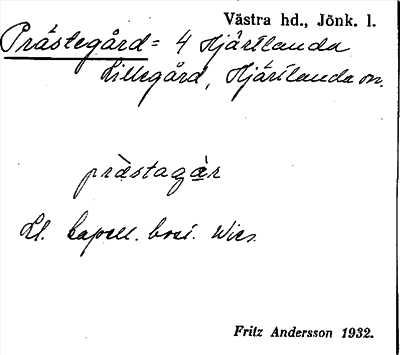 Västra hd., Jönk. l.
Prästegård = 4 Hjärtlanda
Lillegård, Hjärtlanda sn.
prästagår
Lt. kapell. bost. Wies.
Fritz Andersson 1932.